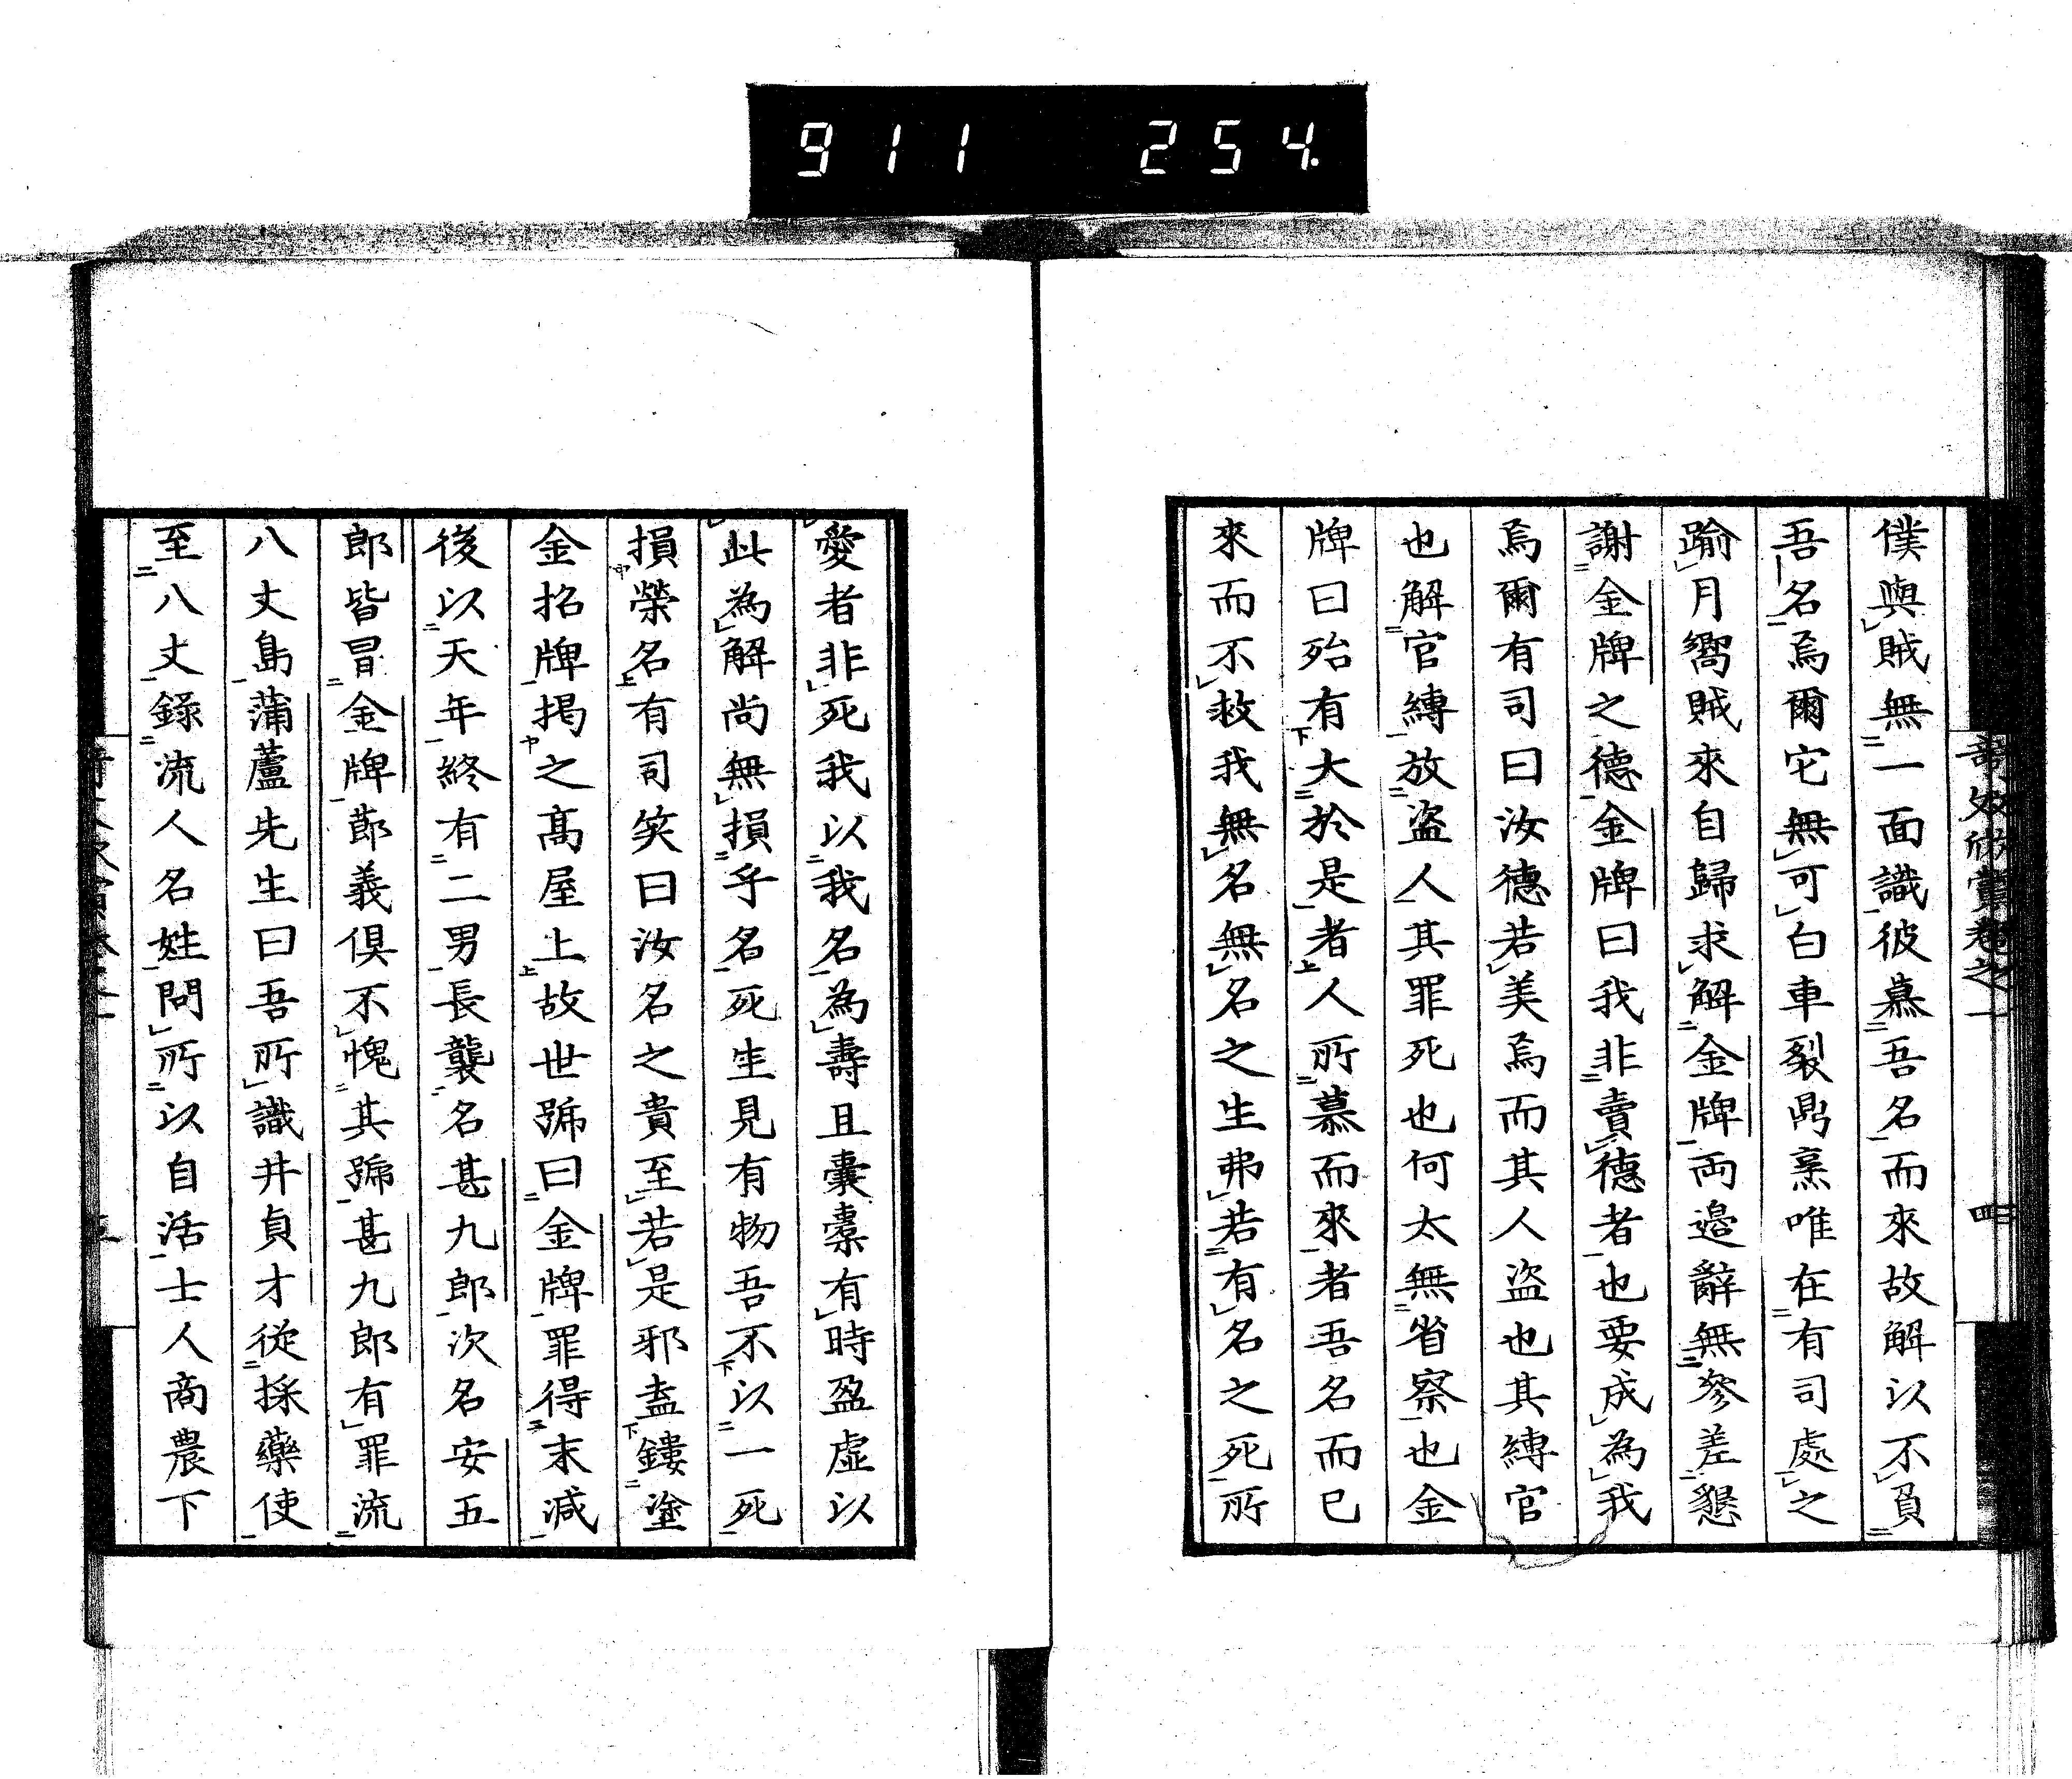 911 254
僕與賊無一面識彼慕吾名而來故解以不負
吾名焉爾它無可白車裂鼎烹唯在有司處之
踰月嚮賊來自歸求解金牌兩邉辭無參差懇
謝金牌之德金牌曰我非賣德者也要成為我
焉爾有司曰汝德若美焉而其人盜也其縛官
也解官縛放盜人其罪死也何太無省察也金
牌曰殆有大於是者人所慕而來者吾名而已
來而不救我無名無名之生弗若有名之死所
愛者非死我以我名為壽且囊槖有時盈虛以
此為解尚無損乎名死生見有物吾不以一死
損榮名有司笑曰汝名之貴至若是邪盍鏤塗
金招牌揭之髙屋上故世號曰金牌罪得末減
後以天年終有二男長襲名甚九郎次名安五
郎皆冒金牌莭義俱不愧其號甚九郎有罪流
八丈島蒲蘆先生曰吾所識井貞才從採藥使
至八丈錄流人名姓問所以自活士人商農下
卷之一
四